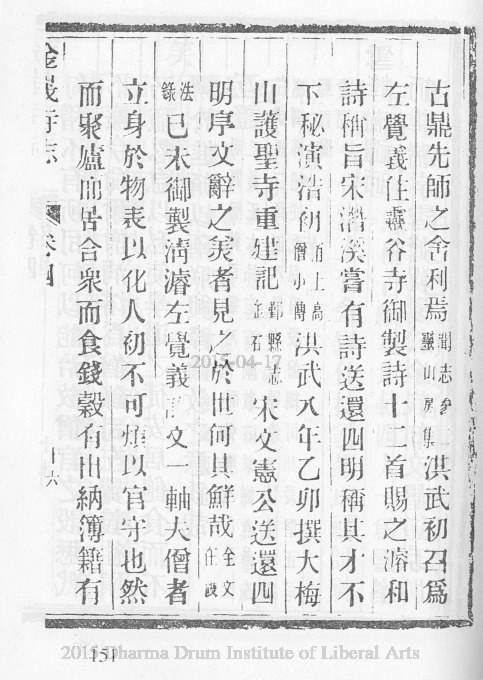 古鼎先師之舍利焉聞志參靈山房集洪武初召爲
左覺義住靈谷寺御製詩十二首賜之濬和
詩稱旨宋潛溪嘗有詩送還四明稱其才不
下秘演浩初甬上高僧小傳洪武八年乙卯撰大梅
山護聖寺重建記鄞縣志金石宋文憲公送還四
明序文辭之美者見之於世何其鮮哉全文在設
法錄己未御製淸濬左覺義文一軸夫僧者
立身於物表以化人初不可煩以官守也然
而聚廬而居合衆而食錢穀有出納簿籍有
金峩寺志
卷四
十六
151
2015-04-17
2015 Dharma Drum Institute of Liberal Arts